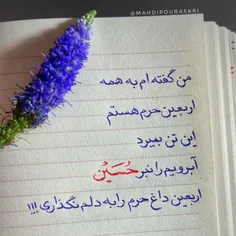 @MAHDIPOURASKRI
من گفته ام به همه
اربعین حرم هستم
این تن بمیرد
آبرویم را نبر حُسَیْن
اربعین داغ حرم را به دلم نگذاری !!!